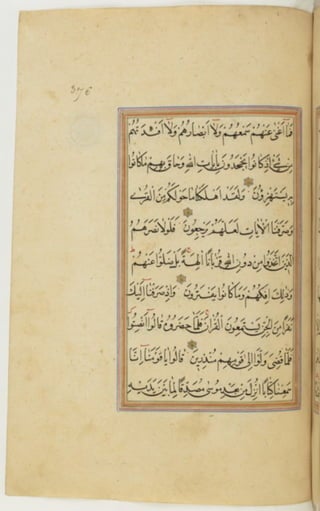 376
فما اغنى عنهم سمعهم ولا ابصارهم ولا افئدتهم
من شئ اذ كانوا يجحدون بايات الله وحاق بهم ما كانوا
به يستهزؤن ولقد اهلكنا ما حولكم من القرى
وصرفنا الايات لعلهم يرجعون فلولا نصرهم
الذين اتخذوا من دون الله قربانا الهة بل ضلوا عنهم
وذلك افكهم وما كانوا يفترون واذ صرفنا اليك
نفرا من الجن يستمعون القران فلما حضروه قالوا انصتوا
فلما قضى ولوا الى قومهم منذرين قالوا يا قومنا انا
سمعنا كتابا انزل من بعد موسى مصدقا لما بين يديه